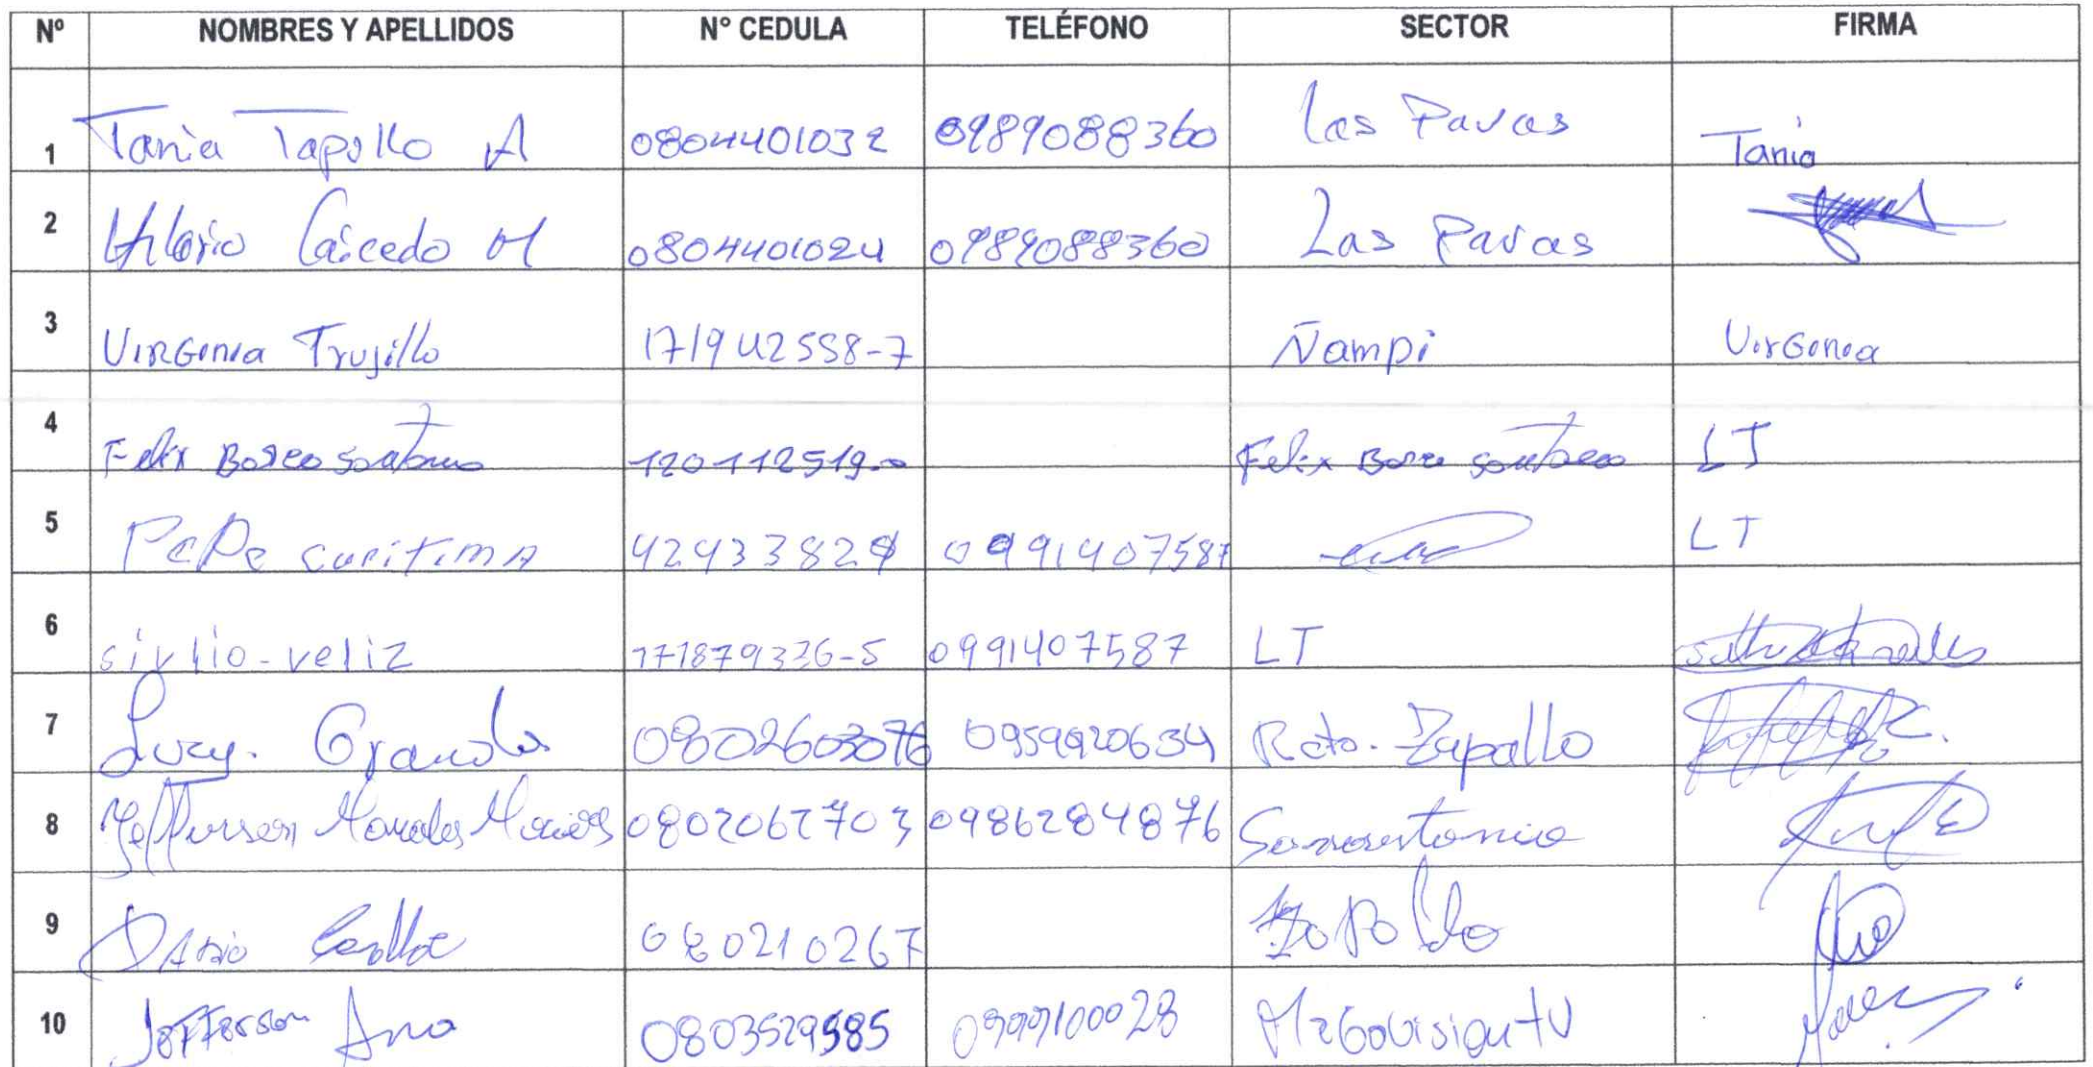 Nº NOMBRES Y APELLIDOS Nº CEDULA TELÉFONO SECTOR FIRMA
1 Tania Tapullo A 0804401032 0989088360 Las Pavas Tania
2 Hilario Caicedo M 0804401024 0989088360 Las Pavas
3 VIRGINIA Trujillo 171942558-7 Ñampi Virginia
4 Felix Bosco 120112519-0 Felix Bosco LT
5 PePe curitimA 42433829 0991407587 LT
6 silvio-veliz 171879336-5 0991407587 LT
7 Lucy. Granda 0802603076 0959920634 Rcto. Zapallo
8 Jefferson Morales Macias 0802067703 0986284876 Sanantonio
9 DARIO 080210267
10 Jefferson 0803529585 0999100028 Megavision tv